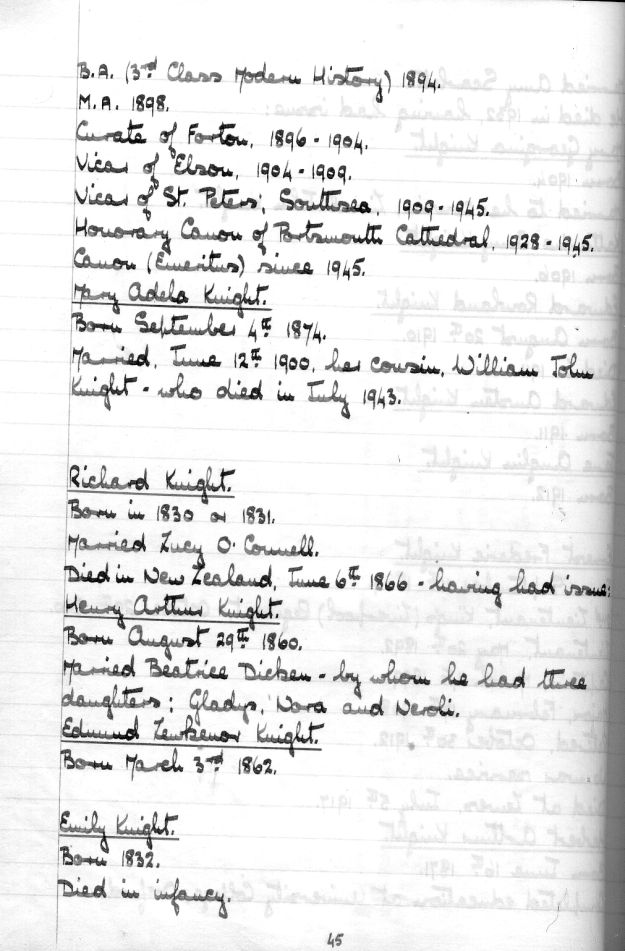 B.A. (3rd Class Modern History) 1894.
M.A. 1898.
Curate of Forton, 1896 - 1904.
Vicar of Elson, 1904 - 1909.
Vicar of St. Peters; Southsea, 1909 - 1945.
Honorary Canon of Portsmouth Cathedral, 1928 - 1945.
Canon (Emeritus) since 1945.
Mary Adela Knight.
Born September 4th 1874.
Married, June 12th 1900, her cousin, William John
Knight - who died in July 1943.
Richard Knight.
Born in 1830 or 1831.
Married Lucy O'Connell.
Died in New Zealand, June 6th 1866 - having had issue:
Henry Arthur Knight.
Born August 29th 1860.
Married Beatrice Dicken - by whom he had three
daughters; Gladys, Nora and Neroli.
Edmund Lewkenor Knight.
Born March 3rd 1862.
Emily Knight.
Born 1832.
Died in infancy.
45